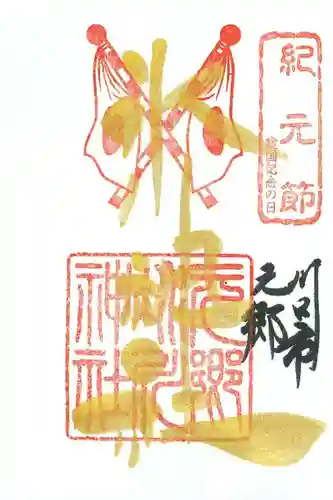 紀元節
建国記念の日
川口市
元郷
氷川神社
元郷
氷川
神社